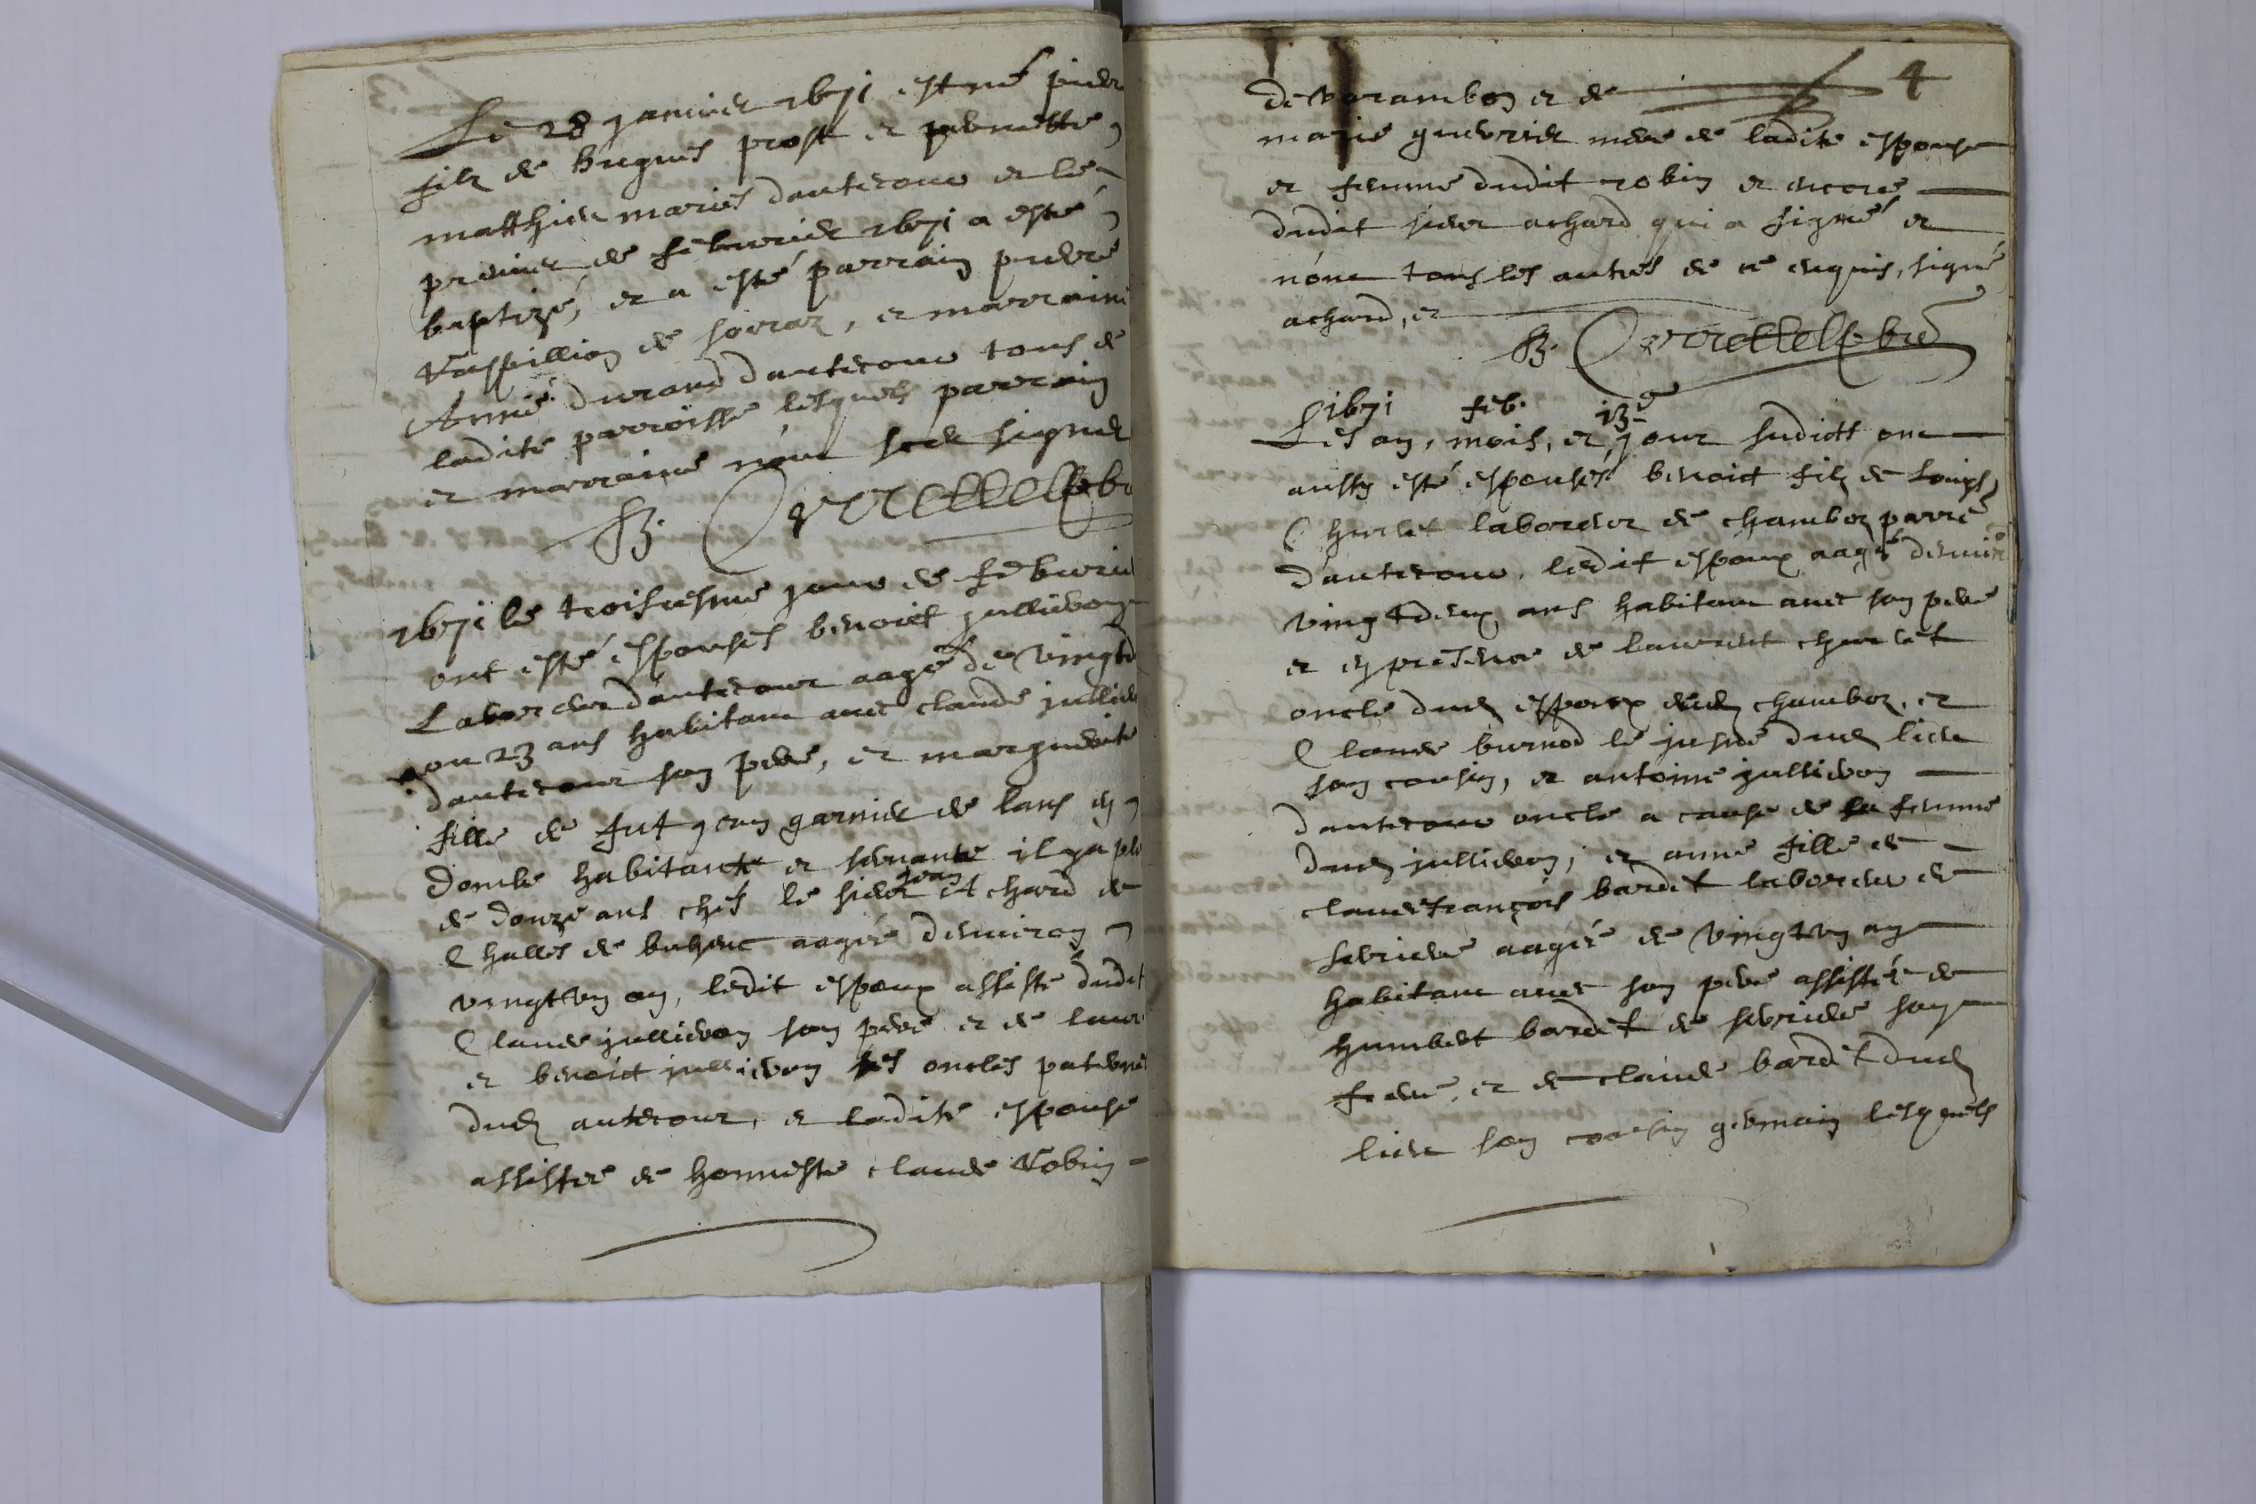 Le 28 janvier 1671 est né pierre
filz de Hugues prost et pernette
matthieu mariés dantecour et le
premier de febvrier 1671 a esté
baptizé, et a esté parrain pierre
Vaspillion de , et marraine
Anne durand dantecour tous de
ladite parroisse lesquels parrain
et marraine n'ont sceu signer
B.
1671 le troisiesme jour de febvrier
ont esté espousés benoict jullieron
Laboreur dantecour aagé de vingtd
ou 23 ans habitant avec claude jullieron
dantecour son pere, et marguerite
fille de fut jean garnier de lans en
dombe habitante et servante il y a plus
de douze ans chés le sieur jean Achard de
Challes de aagée denviron
vingtun an, ledit espoux assisté dudit
Claude jullieron son pere et de laur
et benoict jullieron ses oncles paternels
dud antecour, et ladite espouse
assistee de honneste claude Robin
4
de varambon et de
marie guerrier mere de ladite espouse
et femme dudit robin et encore
dudit sieur achard qui a signé et
nonc tous les autres de ce enquis, signé
achard, et
B.
1671 feb. 13e
Les an, mois, et jour sudictt ont
aussy esté espousés benoict filz de Louys
Churlet laboreur de chamboz parre
d'antecour, ledit espoux aagé denviron
vingtdeux ans habitant avec son pere
et en presence de laurent churlet
oncle dud espoux dud chamboz, et
Claude burnod le jusne dud lieu
son cousin, et antoine jullieron
dantecour oncle a cause de sa femme
dud jullieron, et anne fille de
claude françois bardet laboreur de
aagée de vingtun an
habitant avec son pere assistée de
humbert bardet de son
frere, et de claude bardet dud
lieu son cousin germain lesquels